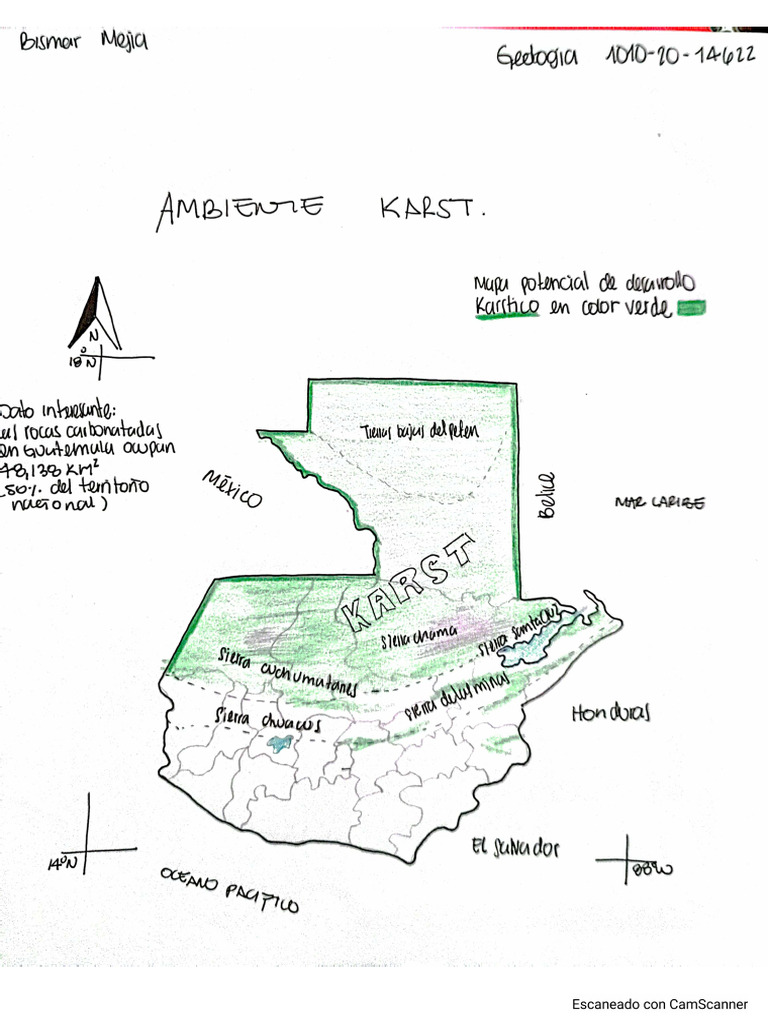 Bismar Mejia
Geologia 1010-20-14622
AMBIENTE KARST.
Mapa potencial de desarrollo
Karstico en color verde
N
18°N
Dato interesante:
Las rocas carbonatadas
en Guatemala ocupan
48,138 Km²
(50% del territorio
nacional)
Tierras bajas del peten
México
Belice
MAR CARIBE
KARST
Sierra chama
Sierra Santa Cruz
Sierra cuchumatanes
Sierra de las minas
Sierra chuacus
Honduras
14°N
El Salvador
88°W
OCÉANO PACIFICO
Escaneado con CamScanner